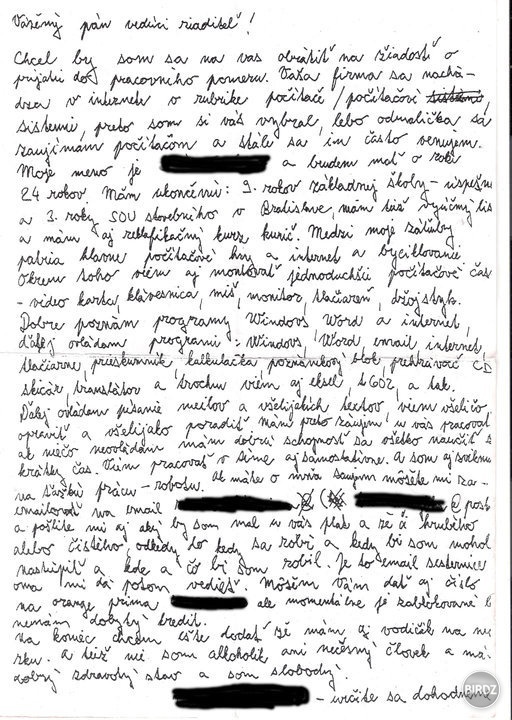 Vážený pán vedúci riaditeľ!
Chcel by som sa na vas obrátiť na žiadosť o
prijatie do pracovního pomeru. Vaša firma sa nachá-
dza v internete v rubrike počítače/počítačové
sistémi, preto som si vás vybral, lebo odmalička sa
zaujímám počítačom a stále sa im často venujem.
Moje meno je a budem mať o rok
24 rokov. Mám ukončenú: 9. rokov základnej školy - uspešne
a 3. roky SOU stavebního v Bratislave, mám tiež výučný lis
a mám aj reklafikačný kurz kurič. Medzi moje záľuby
patria hlavne počítačové hry a internet a byciklovanie
Okrem toho viem aj montovať jednoduchšie počítačové čas
- video karta, klávesnica, miš, monitor, tlačiareň, džojstyk.
Dobre poznám programy Windovs Word a internet,
ďalej ovládam programi: Windovs, Word, email internet,
tlačiarne, prieskumník, kalkulačka poznámkový blok, prehrávač CD
skicár, translátor a trochu viem aj eksel, t602, a tak.
Ďalej ovládam písanie meilov a všelijakích textov, viem všeličo
opraviť a všelijako poradiť mám preto záujem u vás pracovať
ak niečo neovládám mám dobrú schopnosť sa všetko naučiť s
krátky čas. Viem pracovať v tíme aj samostatnne. A som aj zviknu
na ťažkú prácu - robotu. Ak máte o mňa zaujem môžete mi za-
emailovať na email @ post
a pošlite mi aj aký by som mal u vás plat a že či hrubího
alebo čistího, odkedy do kedy sa robí a kedy bi som mohol
nastúpiť a kde a čo bi som robil. Je to email sesternice
ona mi dá potom vedieť. Môžim Vám dať aj číslo
na orange prima ale momentálne je zablokované l
nemám dobytý kredit.
na koniec chcem ešte dodať že mám aj vodičák na
a tiež nie som alkoholik ani nečesný človek a má
dobrý zdravotný stav a som slobodný.
- určite sa dohodneme
BIRDZ